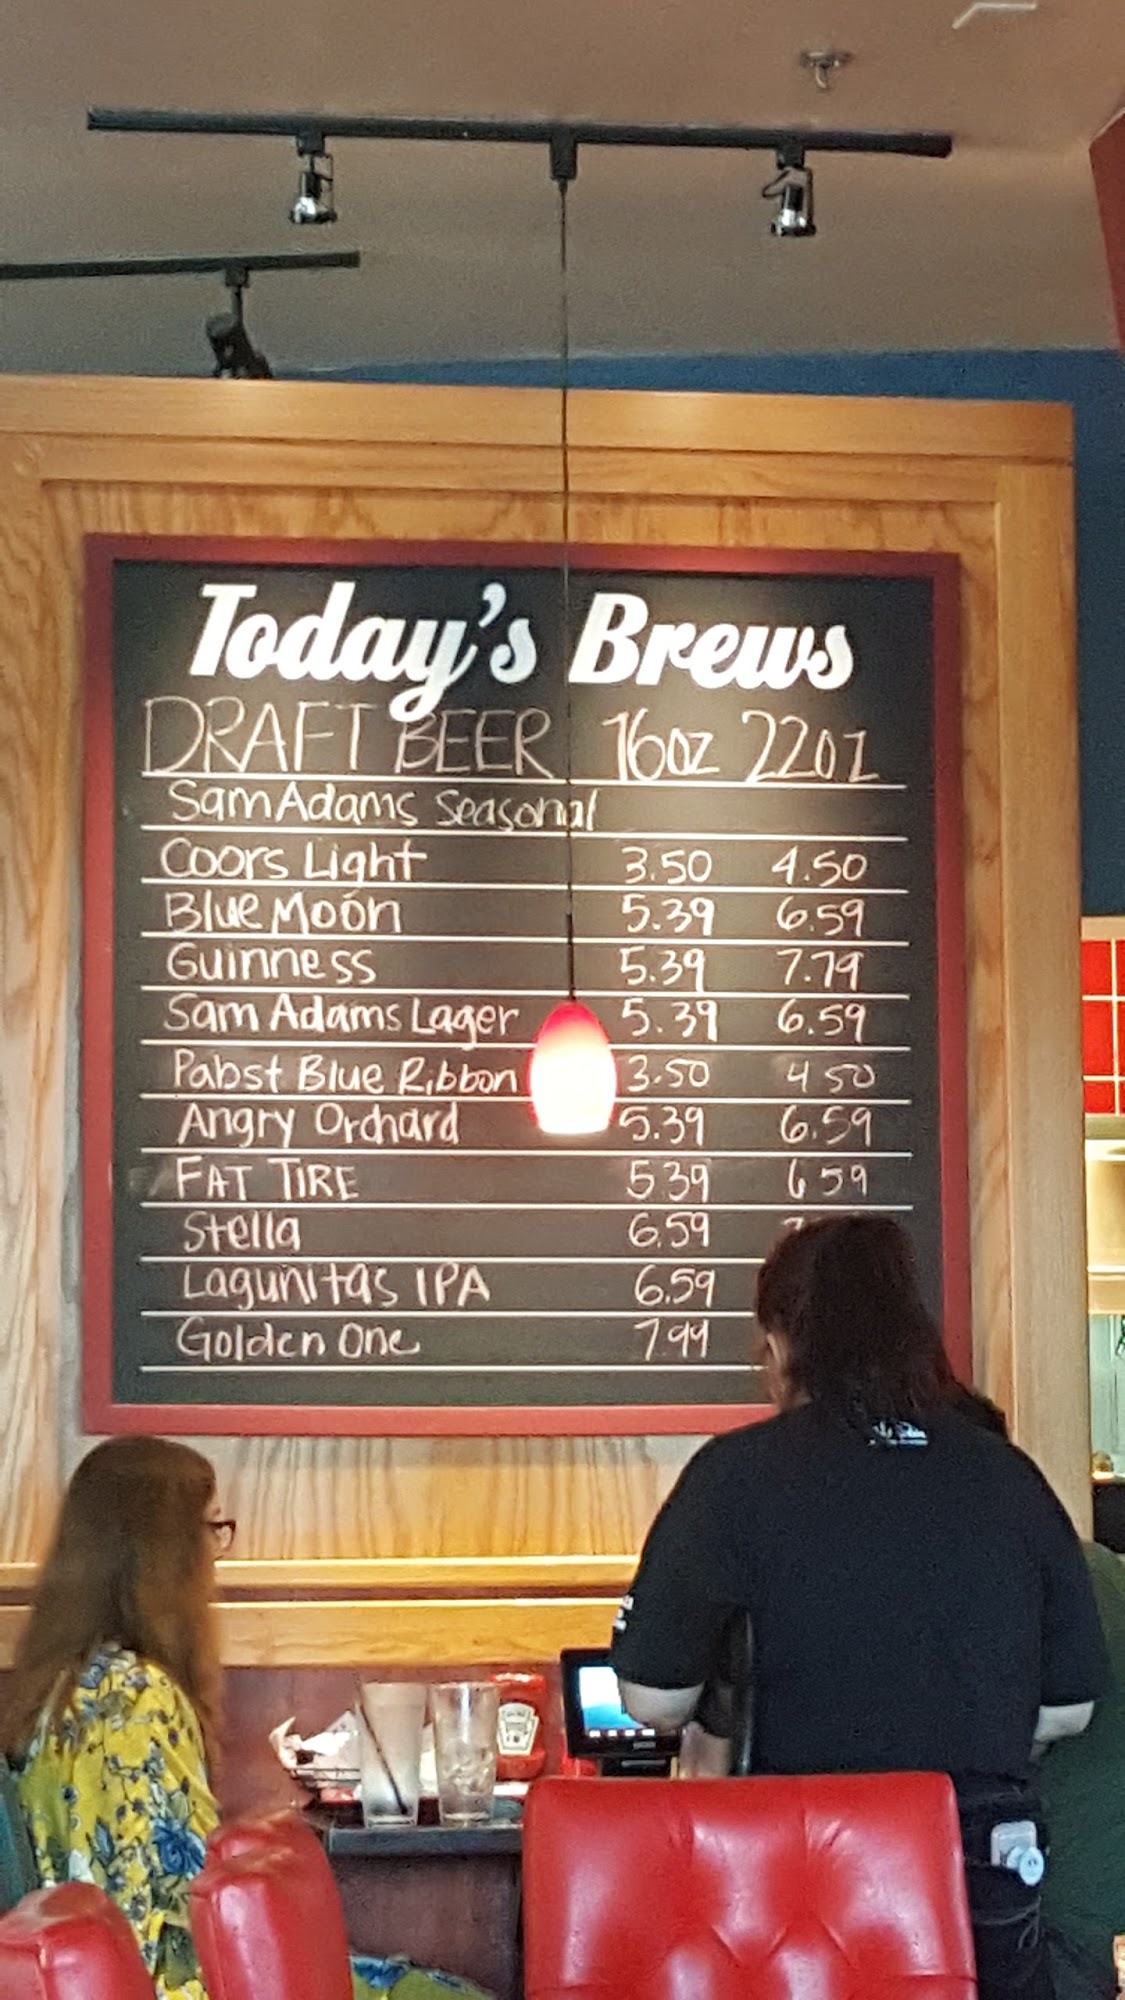 Today's Brews
DRAFT BEER 16oz 22oz
Sam Adams Seasonal
Coors Light 3.50 4.50
Blue Moon 5.39 6.59
Guinness 5.39 7.79
Sam Adams Lager 5.39 6.59
Pabst Blue Ribbon 3.50 4 50
Angry Orchard 5.39 6.59
FAT TIRE 5 39 6 59
Stella 6.59
Lagunitas IPA 6.59
Golden One 7.99
HEINZ